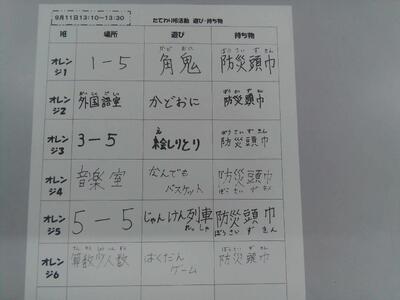 9月11日13:10~13:30
たてわり班活動 遊び・持ち物
班 場所 遊び 持ち物
オレンジ1 1-5 角鬼 防災頭巾
オレンジ2 外国語室 かどおに 防災頭巾
オレンジ3 3-5 絵しりとり 防災頭巾
オレンジ4 音楽室 なんでもバスケット 防災頭巾
オレンジ5 5-5 じゃんけん列車 防災頭巾
オレンジ6 算数少人数 ばくだんゲーム 防災頭巾